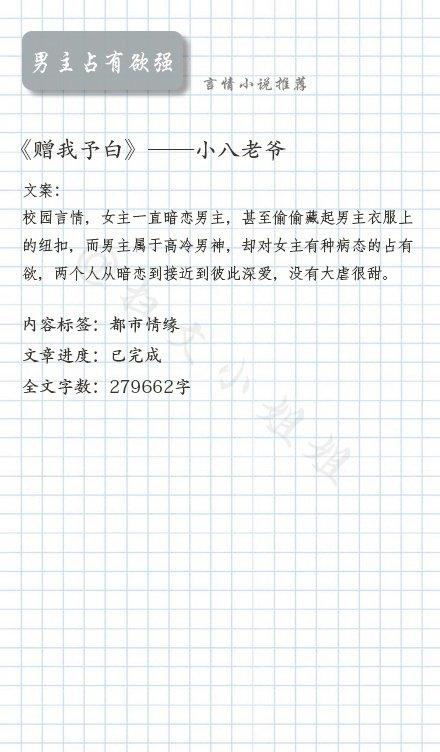 男主占有欲强
言情小说推荐
《赠我予白》——小八老爷
文案:
校园言情，女主一直暗恋男主，甚至偷偷藏起男主衣服上
的纽扣，而男主属于高冷男神，却对女主有种病态的占有
欲，两个人从暗恋到接近到彼此深爱，没有大虐很甜。
内容标签：都市情缘
文章进度：已完成
全文字数：279662字
@扫文小姐姐